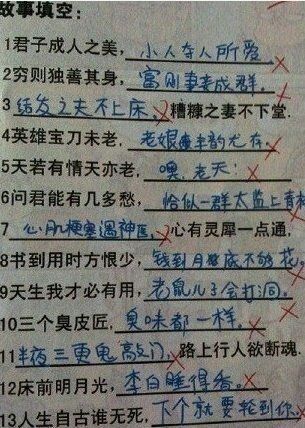 故事填空：
1君子成人之美，小人夺人所爱
2穷则独善其身，富则妻妾成群。
3结发之夫不上床，糟糠之妻不下堂.
4英雄宝刀未老，老娘丰韵尤存。
5天若有情天亦老，噢，老天！
6问君能有几多愁，恰似一群太监上青楼
7心肌梗塞遇神医，心有灵犀一点通，
8书到用时方恨少，钱到月底不够花。
9天生我才必有用，老鼠儿子会打洞。
10三个臭皮匠，臭味都一样。
11半夜三更鬼敲门，路上行人欲断魂.
12床前明月光，李白睡得香。
13人生自古谁无死，下个就要轮到你